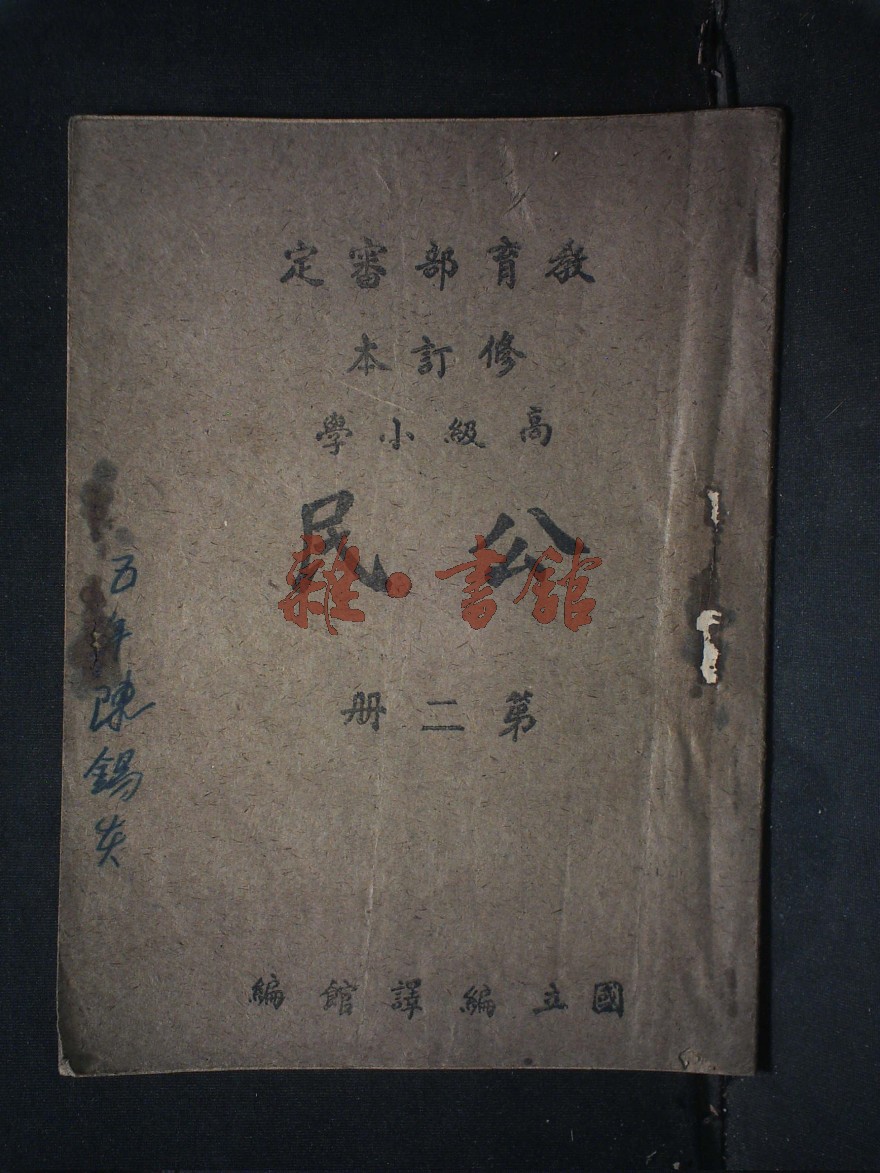 教育部審定
修訂本
高級小學
公民
雜·書館
第二册
國立編譯館編
五年陳錫